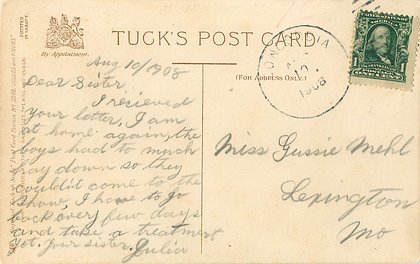 TUCK'S POST CARD
By Appointment.
(FOR ADDRESS ONLY.)
1908
1 1
Aug 10/1908
Dear Sister,
I recieved
your letter, I am
at home again, the
boys had to much
hay down so they
could't come to the
show, I have to go
back every few days
and take a treatment
yet, Your sister, Julia
Miss Gussie Mehl
Lexington
Mo